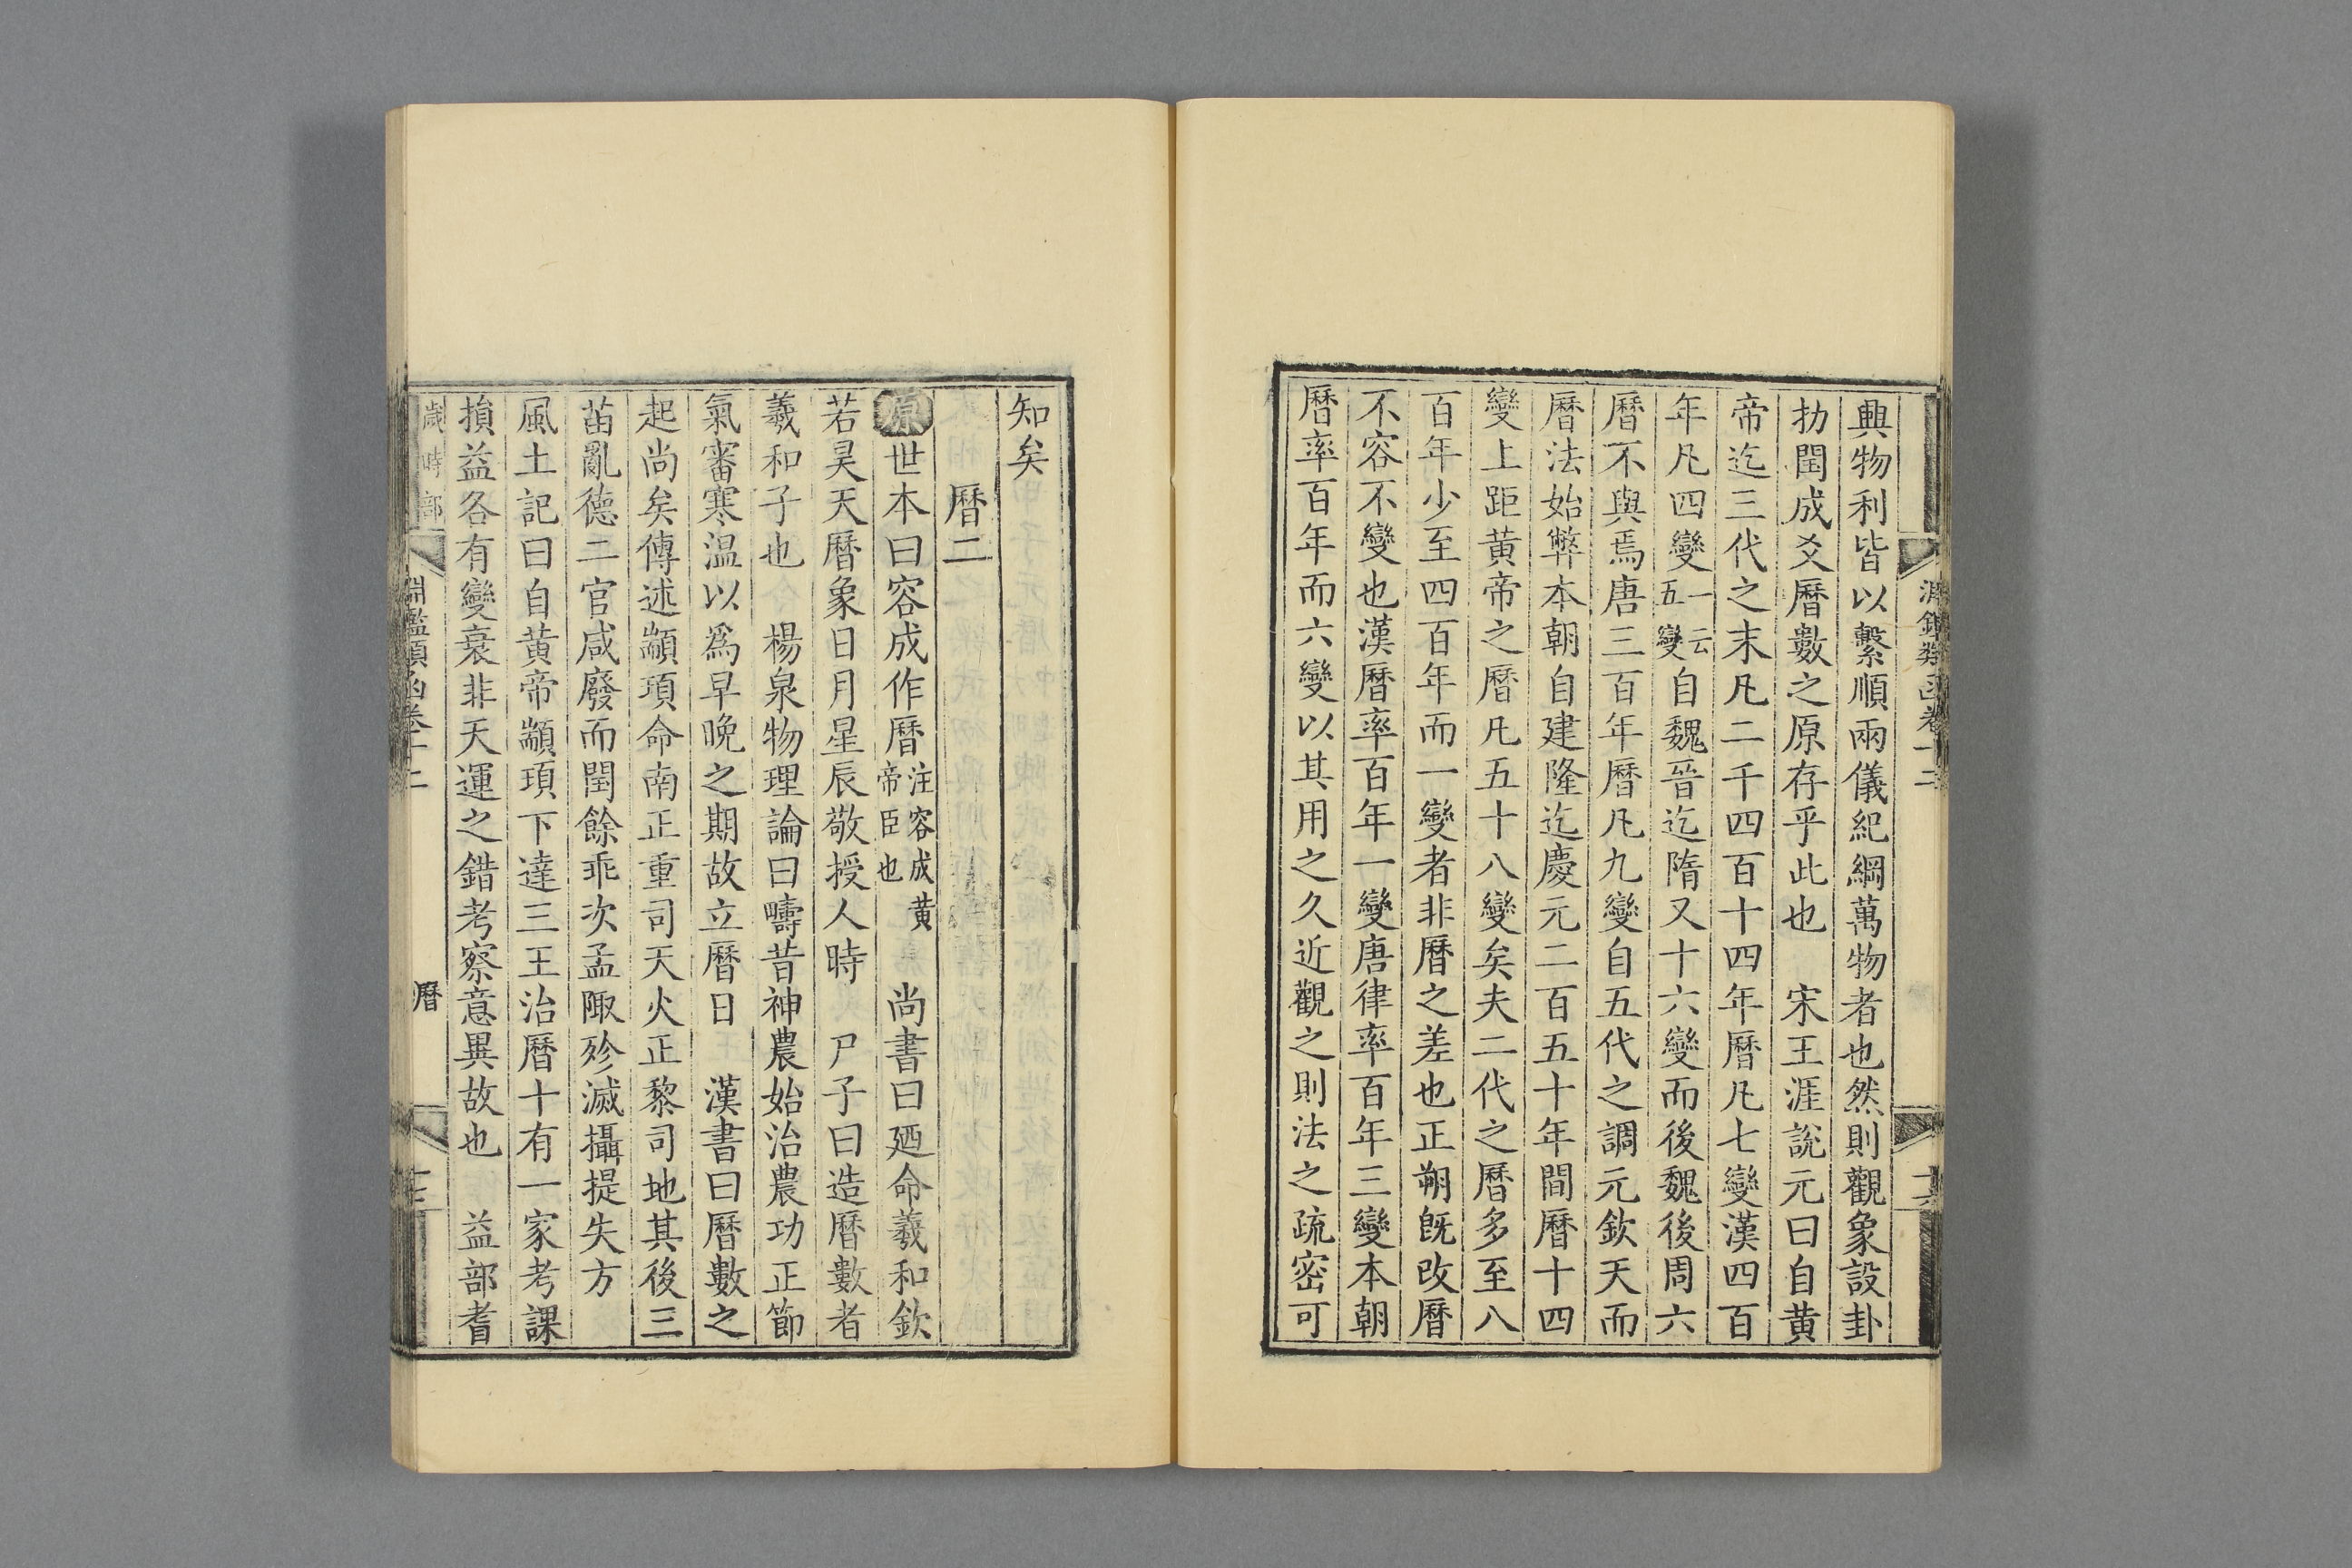 興物利皆以繫順兩儀紀綱萬物者也然則觀象設卦
扐閏成爻曆數之原存乎此也　宋王涯說元曰自黄
帝迄三代之末凡二千四百十四年曆凡七變漢四百
年凡四變一云五變自魏晉迄隋又十六變而後魏後周六
曆不與焉唐三百年曆凡九變自五代之調元欽天而
曆法始弊本朝自建隆迄慶元二百五十年間曆十四
變上距黄帝之曆凡五十八變矣夫二代之曆多至八
百年少至四百年而一變者非曆之差也正朔旣改曆
不容不變也漢曆率百年一變唐律率百年三變本朝
曆率百年而六變以其用之久近觀之則法之疏密可
知矣
曆二
原世本曰容成作曆注容成黄帝臣也　尚書曰廼命羲和欽
若昊天曆象日月星辰敬授人時　尸子曰造曆數者
羲和子也　楊泉物理論曰疇昔神農始治農功正節
氣審寒温以爲早晚之期故立曆日　漢書曰曆數之
起尚矣傳述顓頊命南正重司天火正黎司地其後三
苗亂德二官咸廢而閏餘乖次孟陬殄滅攝提失方
風土記曰自黄帝顓頊下達三王治曆十有一家考課
損益各有變衰非天運之錯考察意異故也　益部耆
歲時部
淵鑑類函卷十二
曆